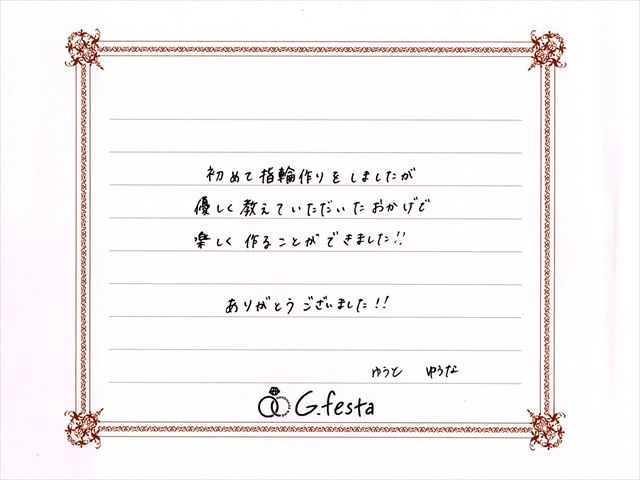 初めて指輪作りをしましたが
優しく教えていただいたおかげで
楽しく作ることができました!!
ありがとうございました!!
ゆうと ゆうな
G.festa